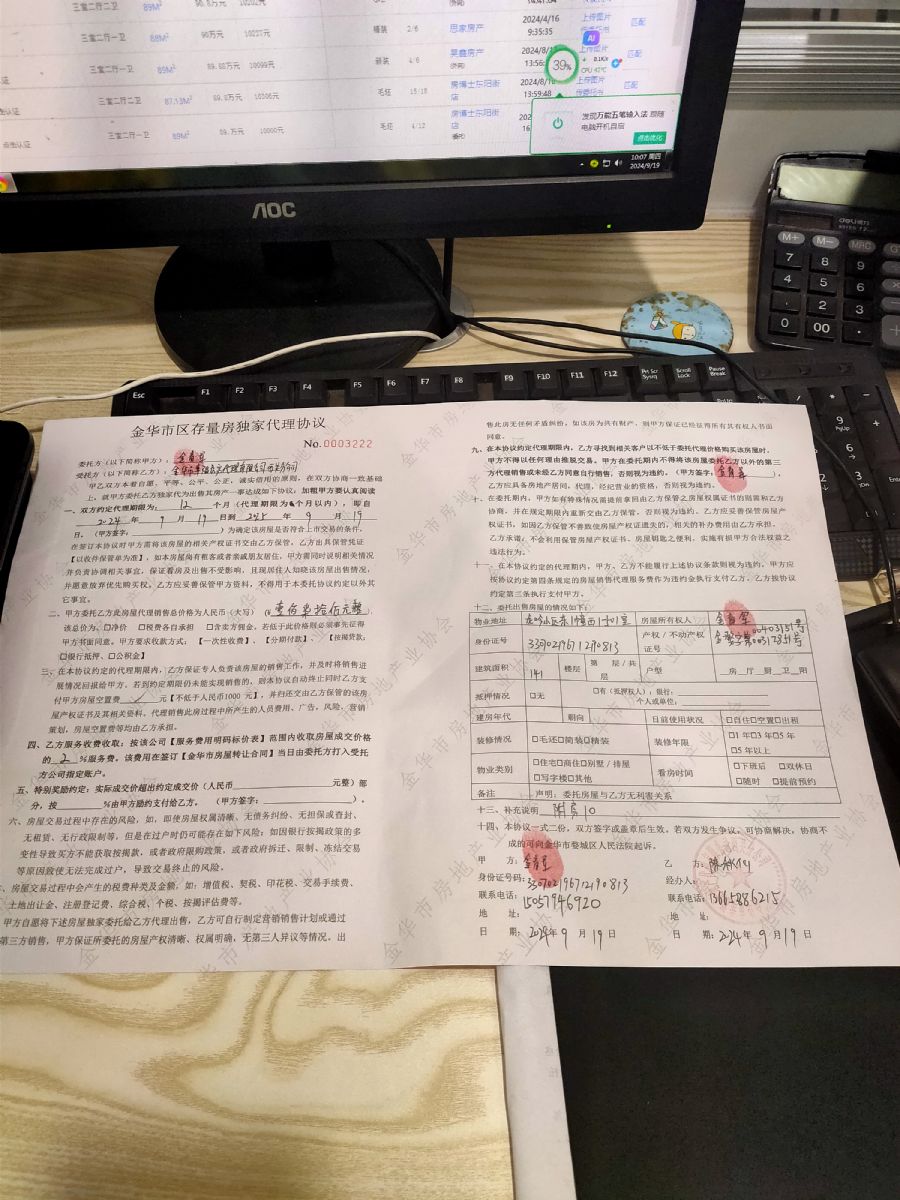 三室二厅二卫 89M² 90.8万元 10202元
三室二厅一卫 88M² 90万元 10227元 精装 2/6 思家房产 2024/4/16 9:35:35 上传图片 匹配
三室二厅一卫 89M² 89.88万元 10099元 4/6 昊鑫房产
三室二厅二卫 87.13M² 89.8万元 10306元 毛坯 15/18 房博士东阳街店 13:59:48 匹配
三室二厅一卫 89M² 89.万元 10000元 毛坯 4/12 房博士东阳街店
点击认证
AI
39%
0.1K/s
CPU 42℃
发现万能五笔输入法 跟随
电脑开机自启
点击优化
10:07 周四
2024/9/19
AOC
deli
M+ M- MRC
7 8 9
4 5 6
1 2 3
0 00 .
Esc F1 F2 F3 F4 F5 F6 F7 F8 F9 F10 F11 F12 Prt Scr SysRq Scroll Lock Pause Break
金华市区存量房独家代理协议
No.0003222
委托方（以下简称甲方）：
受托方（以下简称乙方）：
甲乙双方本着自愿、平等、公平、公正、诚实信用的原则，在双方协商一致基础
上，就甲方委托乙方独家代为出售其房产一事达成如下协议：如租甲方要认真阅读
一、双方约定代理期限为： 12 个月（代理期限为6个月以内），即自
2024 年 9 月 19 日到 2025 年 9 月 19
日。（甲方签字： ）为确定该房屋是否符合上市交易的条件，
在签订本协议时甲方需将该房屋的相关产权证书交由乙方保管，乙方出具保管凭证
【以收件保管单为准】，如本房屋尚有租客或者亲戚朋友居住，甲方需同时说明相关情况
并负责协调相关事宜，保证看房及出售不受影响，且现居住人知晓该房屋出售情况，
并愿意放弃优先购买权。乙方应妥善保管甲方资料，不得用于本委托协议约定以外其
它事宜。
二、甲方委托乙方此房屋代理销售总价格为人民币（大写）
该总价为：□净价 □税费各自承担 □含卖方佣金。若低于此价格则必须事先征得
甲方书面同意。甲方要求收款方式：【一次性收费】、【分期付款】、【按揭贷款：
□银行抵押、□公积金】
三、在本协议约定的代理期限内，乙方保证专人负责该房屋的销售工作，并及时将销售进
展情况回报给甲方。若到约定期限仍未能实现销售的，则本协议自动终止同时乙方支
付甲方房屋空置费 元【不低于人民币1000 元】，并归还交由乙方保管的该房
屋产权证书及其相关资料。代理销售此房过程中所产生的人员费用、广告、风险、营销
策划，房屋空置费等均由乙方承担。
四、乙方服务收费收取：按该公司【服务费用明码标价表】范围内收取房屋成交价格
的 2 %服务费。该费用在签订【金华市房屋转让合同】当日由委托方打入受托
方公司指定账户。
五、特别奖励约定：实际成交价超出约定成交价（人民币 元整）部
分，按 %由甲方励约支付给乙方。（甲方签字： ）。
六、房屋交易过程中存在的风险，如，即使房屋权属清晰、无债务纠纷、无担保或查封、
无租赁、无行政限制等，但是在过户时仍可能存在如下风险：如因银行按揭政策的多
变性导致买方不能获取按揭款，或者政府限购政策，或者政府拆迁、限制、冻结交易
等原因致使无法完成过户，导致交易终止的风险。
、房屋交易过程中会产生的税费种类及金额，如：增值税、契税、印花税、交易手续费、
土地出让金、注册登记费、综合税、个税、按揭评估费等。
甲方自愿将下述房屋独家委托给乙方代理出售，乙方可自行制定营销销售计划或通过
第三方销售，甲方保证所委托的房屋产权清晰、权属明确，无第三人异议等情况。出
售此房无任何矛盾纠纷，如该房为共有财产，则甲方保证已经征得所有共有权人书面
同意。
九、在本协议约定代理期限内，乙方寻找到相关客户以不低于委托代理价格购买该房屋时，
甲方不得以任何理由推脱交易。甲方在委托期内不得将该房屋委托乙方以外的第三
方代理销售或未经乙方同意自行销售，否则视为违约。（甲方签字： ）。
乙方应具备房地产居间、代理、经纪营业的资格，否则视为违约。
十、在委托期内，甲方如有特殊情况需提前拿回由乙方保管之房屋权属证书的则需和乙方
协商，并在规定期限内重新交由乙方保管，否则视为违约。乙方应妥善保管房屋产
权证书，如因乙方保管不善致使房屋产权证遗失的，相关的补办费用由乙方承担。
乙方承诺，不会利用保管房屋产权证书、房屋钥匙之便利，实施有损甲方合法权益之
违法行为。
十一、在本协议约定的代理期内，甲、乙方不能履行上述协议条款则视为违约，甲方应
按协议约定第四条规定的房屋销售代理服务费作为违约金执行支付乙方。乙方按协议
约定第三条执行支付甲方。
十二、委托出售房屋的情况如下：
物业地址 房屋所有权人
身份证号 330702196712190813 产权 / 不动产权证号
建筑面积 141 楼层 第 层 / 共 层 户型 房 厅 厨 卫 阳
抵押情况 □无 □有（抵押权人）：银行：
个人或单位：
建房年代 朝向 目前使状况 □自住□空置□出租
装修情况 □毛坯□简装□精装 装修年限 □1年□3年□5年
□5年以上
物业类别 □住宅□商住□别墅 / 排屋
□写字楼□其他 看房时间 □下班后 □双休日
□随时 □提前预约
备注 声明：委托房屋与乙方无利害关系
十三、补充说明 附房10
十四、本协议一式二份，双方签字或盖章后生效，若双方发生争议，可协商解决，协商不
成的可向金华市婺城区人民法院起诉。
甲 方： 乙 方：
身份证号码：330702196712190813 经办人：
联系电话：15057946920 联系电话：13665886215
地 址： 地 址：
日 期：2024年 9 月 19 日 日 期：2024年 9 月 19 日
金华市房地产业协会